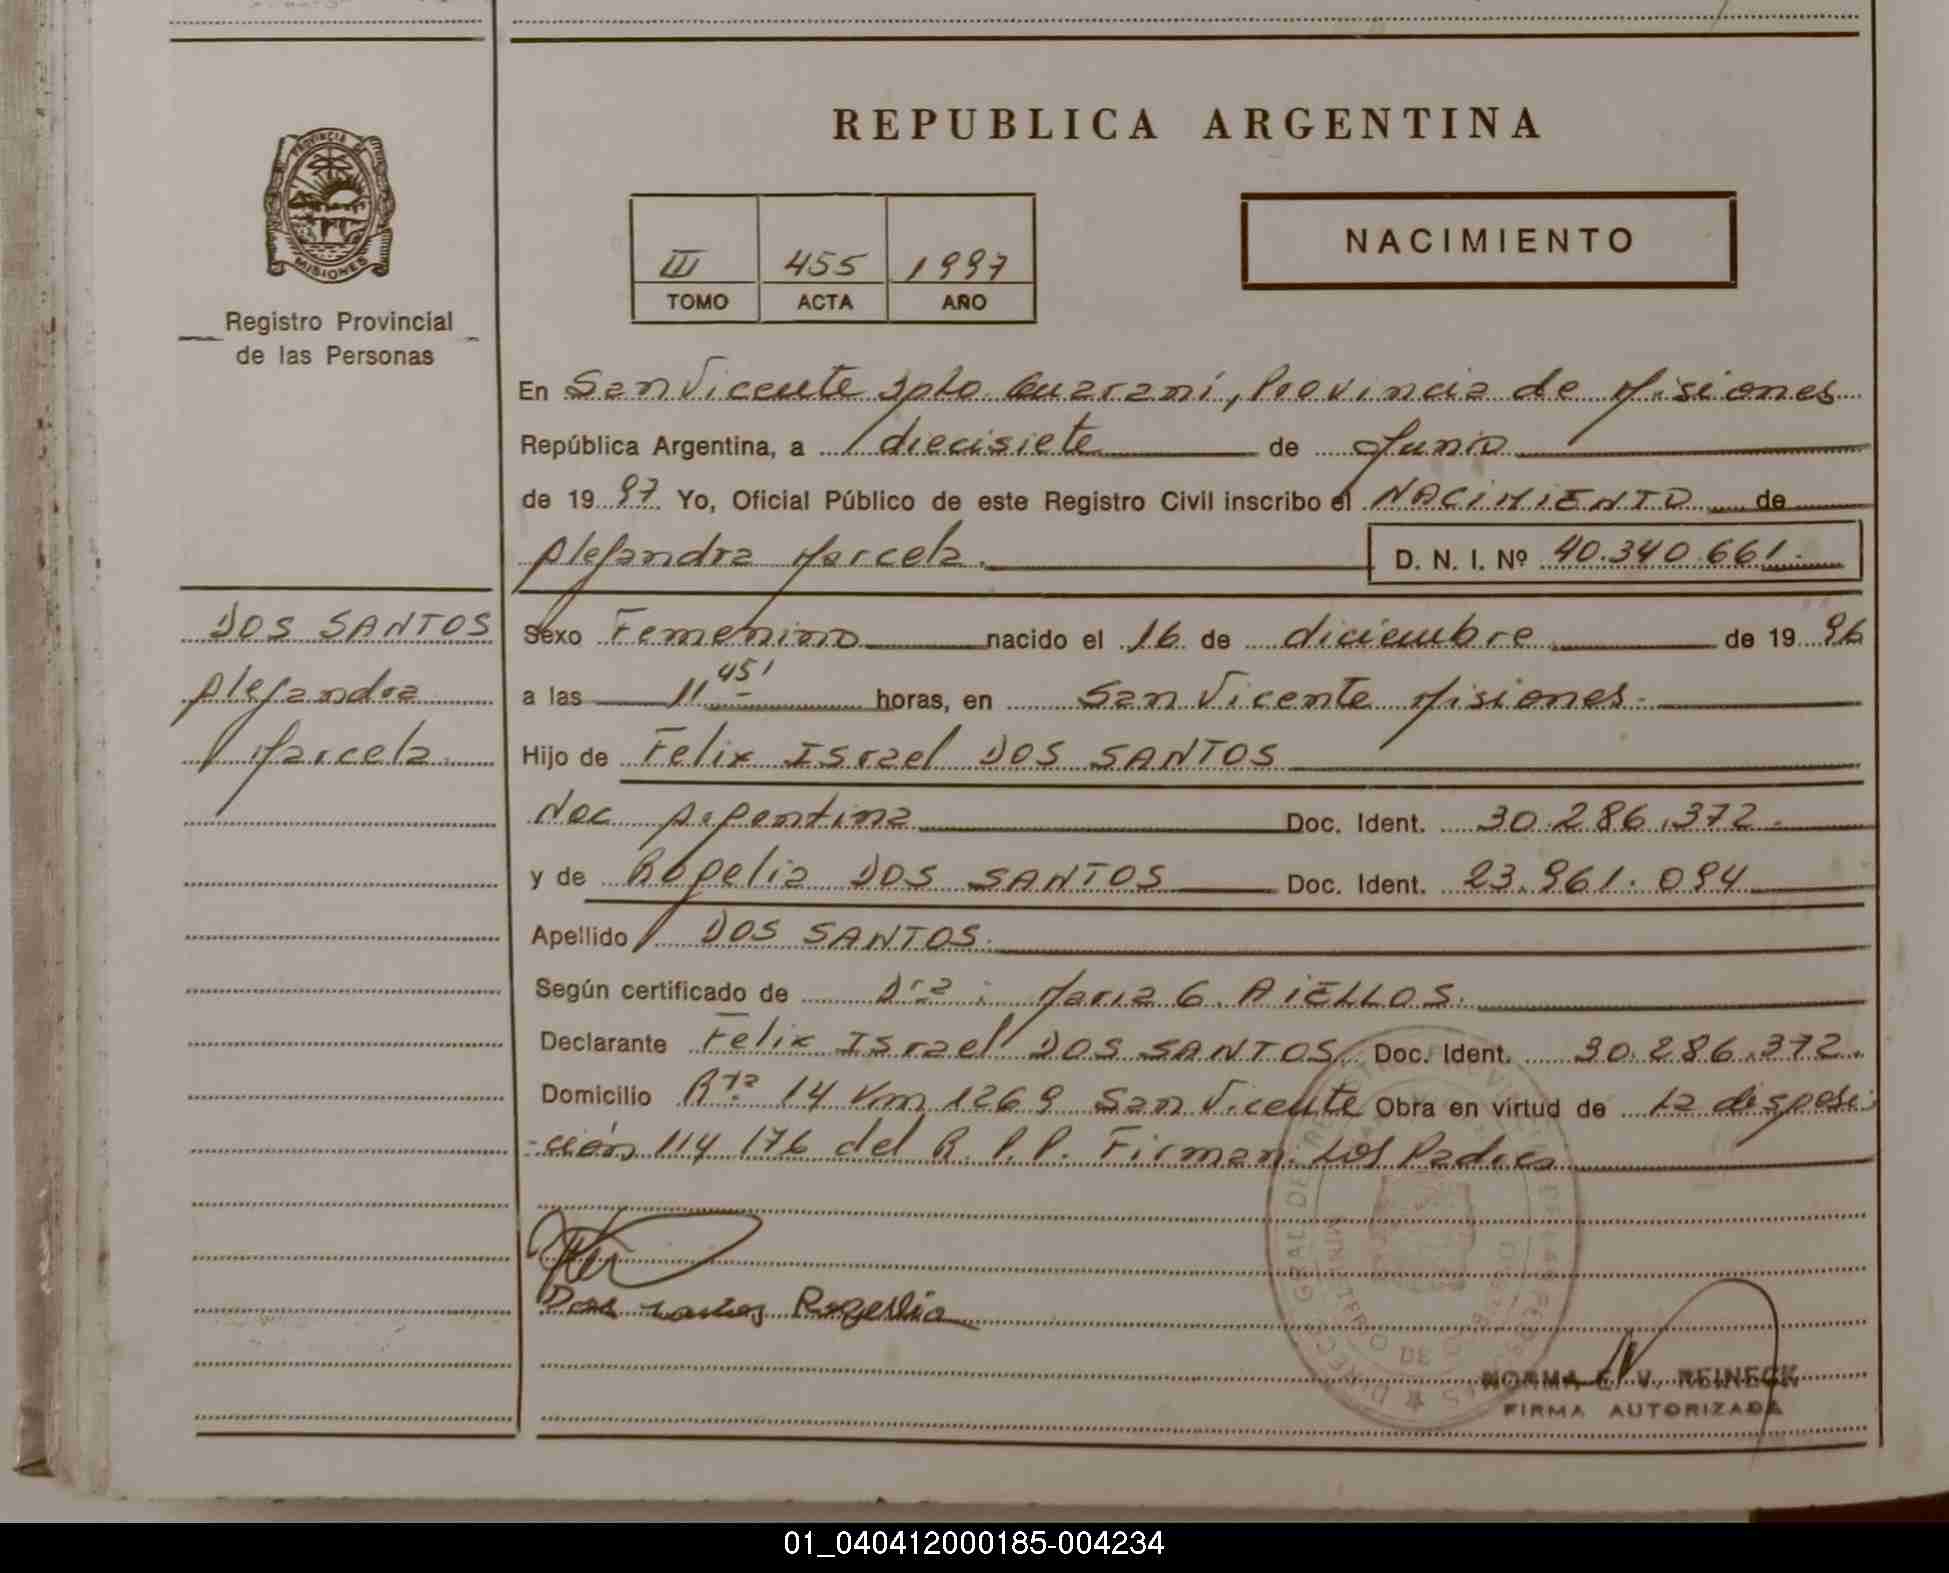 REPUBLICA ARGENTINA
PROVINCIA DE
MISIONES
Registro Provincial
de las Personas
III 455 1997
TOMO ACTA AÑO
NACIMIENTO
En San Vicente Dpto Guaraní, Provincia de Misiones
República Argentina, a diecisiete de Junio
de 1997 Yo, Oficial Público de este Registro Civil inscribo el NACIMIENTO de
Alejandra Marcela. D. N. I. Nº 40.340.661.-
DOS SANTOS
Alejandra
Marcela
Sexo Femenino nacido el 16 de diciembre de 1996
a las 11 45' horas, en San Vicente Misiones.
Hijo de Felix Israel DOS SANTOS
Nac Argentina Doc. Ident. 30.286.372.
y de Rogelia DOS SANTOS Doc. Ident. 23.961.094
Apellido DOS SANTOS.
Según certificado de Dra: Maria G. AiELLOS.
Declarante Felix Israel DOS SANTOS Doc. Ident. 30.286.372.
Domicilio Rta 14 Km 1269 San Vicente Obra en virtud de la disposi
-ción 114/76 del R.P.P. Firman Los Padres
Dos santos Rogelia
NORMA E. V. REINECK
FIRMA AUTORIZADA
01_040412000185-004234